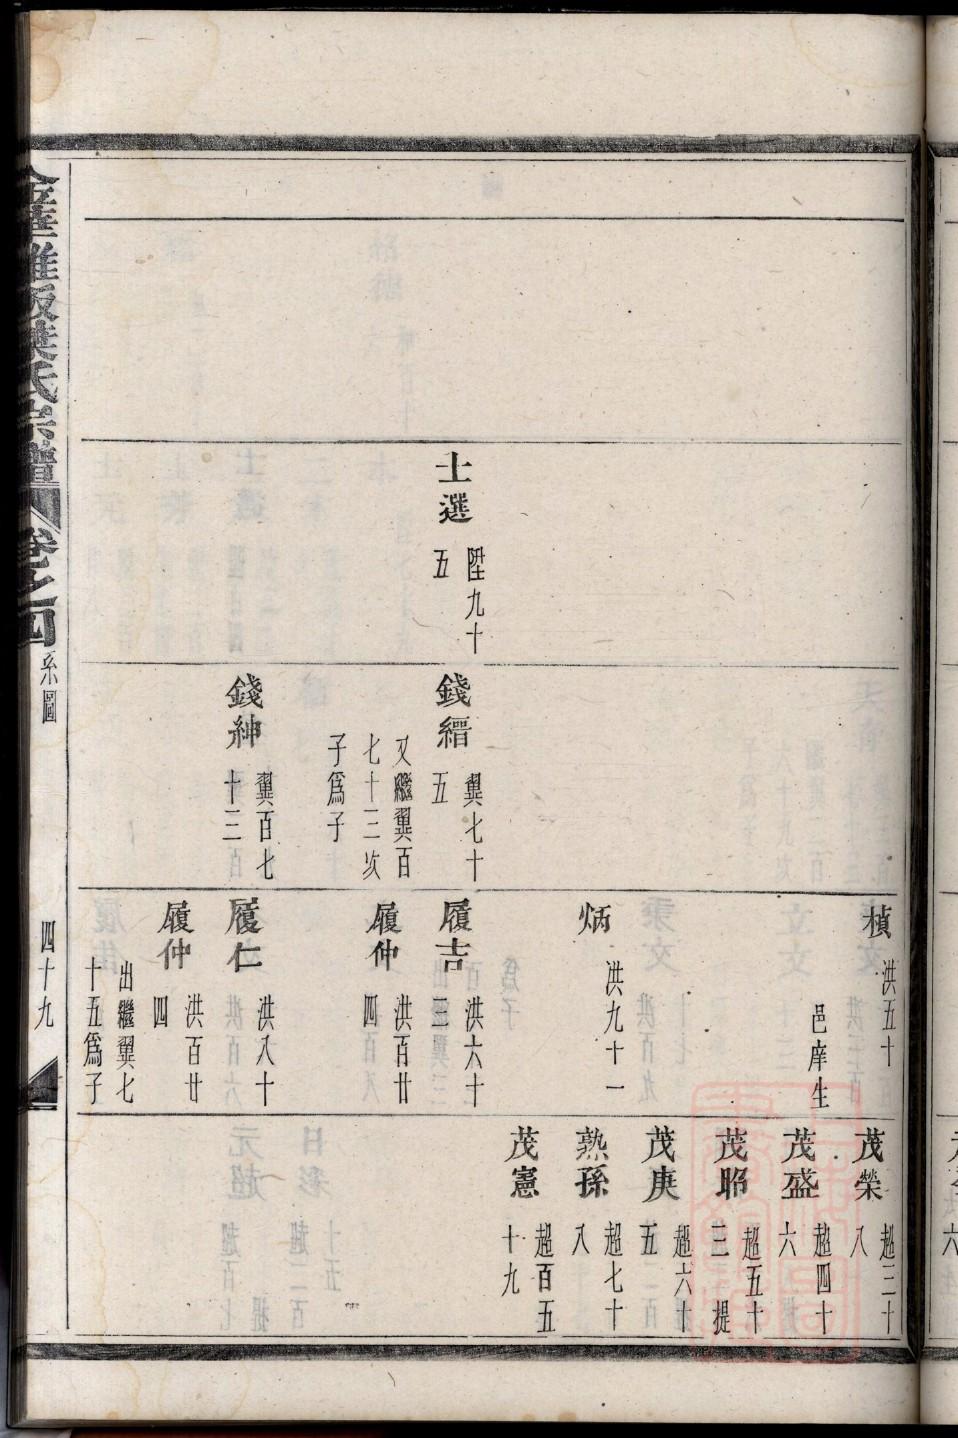 士選 陞九十五
錢縉 翼七十五
又繼翼百七十三次子爲子
錢紳 翼百七十三
楨 洪五十
邑庠生
炳 洪九十一
履吉 洪六十三
履仲 洪百廿四
履仁 洪八十
履仲 洪百廿四
出繼翼七十五爲子
茂榮 超三十八
茂盛 超四十六
茂昭 超五十三 提
茂庚 超六十五
熟孫 超七十八
茂憲 超百五十九
金華雅畈葉氏宗譜 卷之四 系圖 四十九